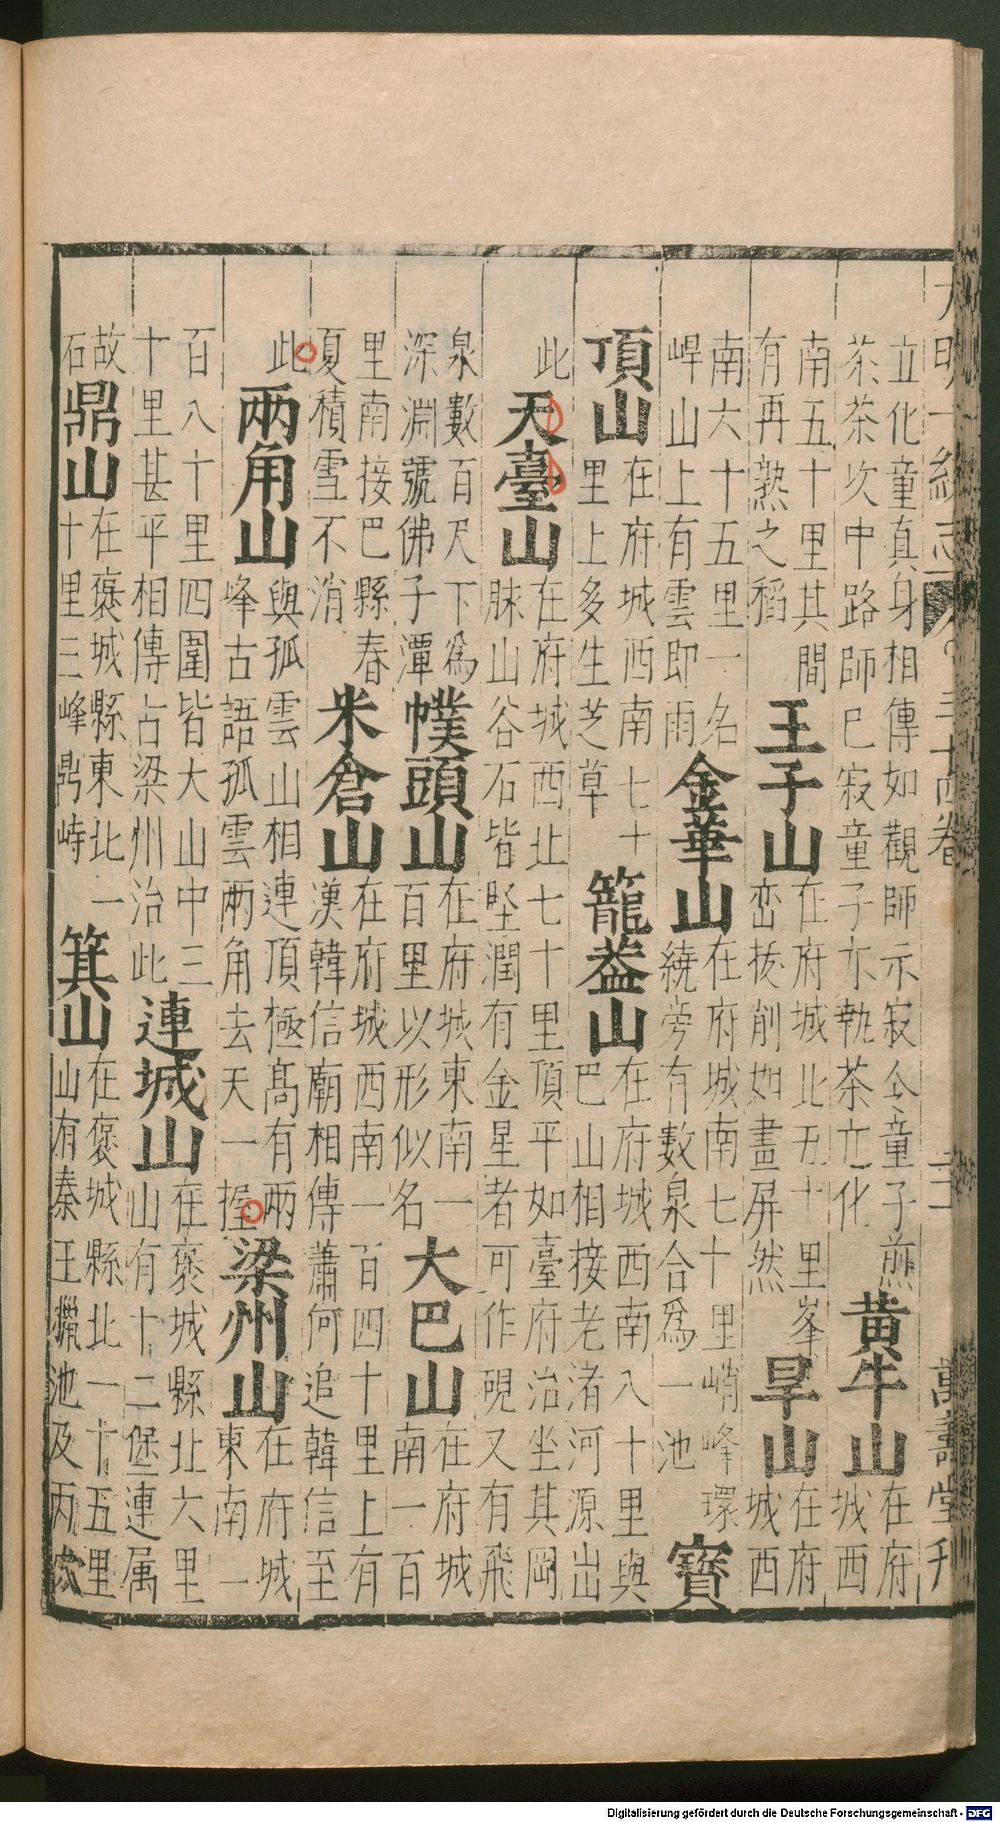 立化童真身相傳如觀師示寂仝童子煎
茶茶次中路師已寂童子亦執茶立化
黄牛山
在府
城西
南五十里其間
有再熟之稻
王子山
在府城北五十里峯
巒拔削如畫屏然
旱山
在府
城西
南六十五里一名
㟁山上有雲即雨
金華山
在府城南七十里峭峰環
繞旁有數泉合爲一池
寳
頂山
在府城西南七十
里上多生芝草
籠蓋山
在府城西南八十里與
巴山相接老渚河源出
此
天臺山
在府城西北七十里頂平如臺府治坐其岡
脉山谷石皆堅潤有金星者可作硯又有飛
泉數百尺下爲
深淵號佛子潭
幞頭山
在府城東南一
百里以形似名
大巴山
在府城
南一百
里南接巴縣春
夏積雪不消
米倉山
在府城西南一百四十里上有
漢韓信廟相傳蕭何追韓信至
此
两角山
與孤雲山相連頂極髙有兩
峰古語孤雲兩角去天一握
梁州山
在府城
東南一
百八十里四圍皆大山中三
十里甚平相傳占梁州治此
連城山
在褒城縣北六里
山有十二堡連属
故
石
鼎山
在褒城縣東北一
十里三峰鼎峙
箕山
在褒城縣北一十五里
山有秦王獵池及丙穴
Digitalisierung gefördert durch die Deutsche Forschungsgemeinschaft - DFG